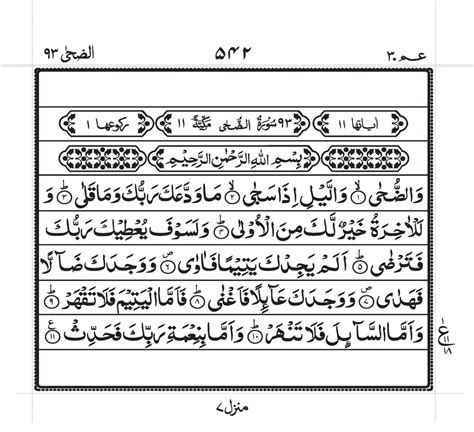 عم ۳۰ ۵۴۲ الضحٰی ۹۳
اٰیاتها ۱۱ ۹۳ سُوْرَةُ الضُّحٰى مَكِّيَّةٌ ۱۱ رکوعها ۱
بِسْمِ اللّٰهِ الرَّحْمٰنِ الرَّحِيْمِ
وَالضُّحٰى ۙ﴿۱﴾ وَالَّيْلِ اِذَا سَجٰى ۙ﴿۲﴾ مَا وَدَّعَكَ رَبُّكَ وَمَا قَلٰى ؕ﴿۳﴾ وَ
لَلْاٰخِرَةُ خَيْرٌ لَّكَ مِنَ الْاُوْلٰى ؕ﴿۴﴾ وَلَسَوْفَ يُعْطِيْكَ رَبُّكَ
فَتَرْضٰى ؕ﴿۵﴾ اَلَمْ يَجِدْكَ يَتِيْمًا فَاٰوٰى ۪﴿۶﴾ وَوَجَدَكَ ضَآلًّا
فَهَدٰى ۪﴿۷﴾ وَوَجَدَكَ عَآىِٕلًا فَاَغْنٰى ؕ﴿۸﴾ فَاَمَّا الْيَتِيْمَ فَلَا تَقْهَرْ ؕ﴿۹﴾
وَاَمَّا السَّآىِٕلَ فَلَا تَنْهَرْ ؕ﴿۱۰﴾ وَاَمَّا بِنِعْمَةِ رَبِّكَ فَحَدِّثْ ﴿۱۱﴾ ع
ع ۱۱ ۱۸
منزل ۷